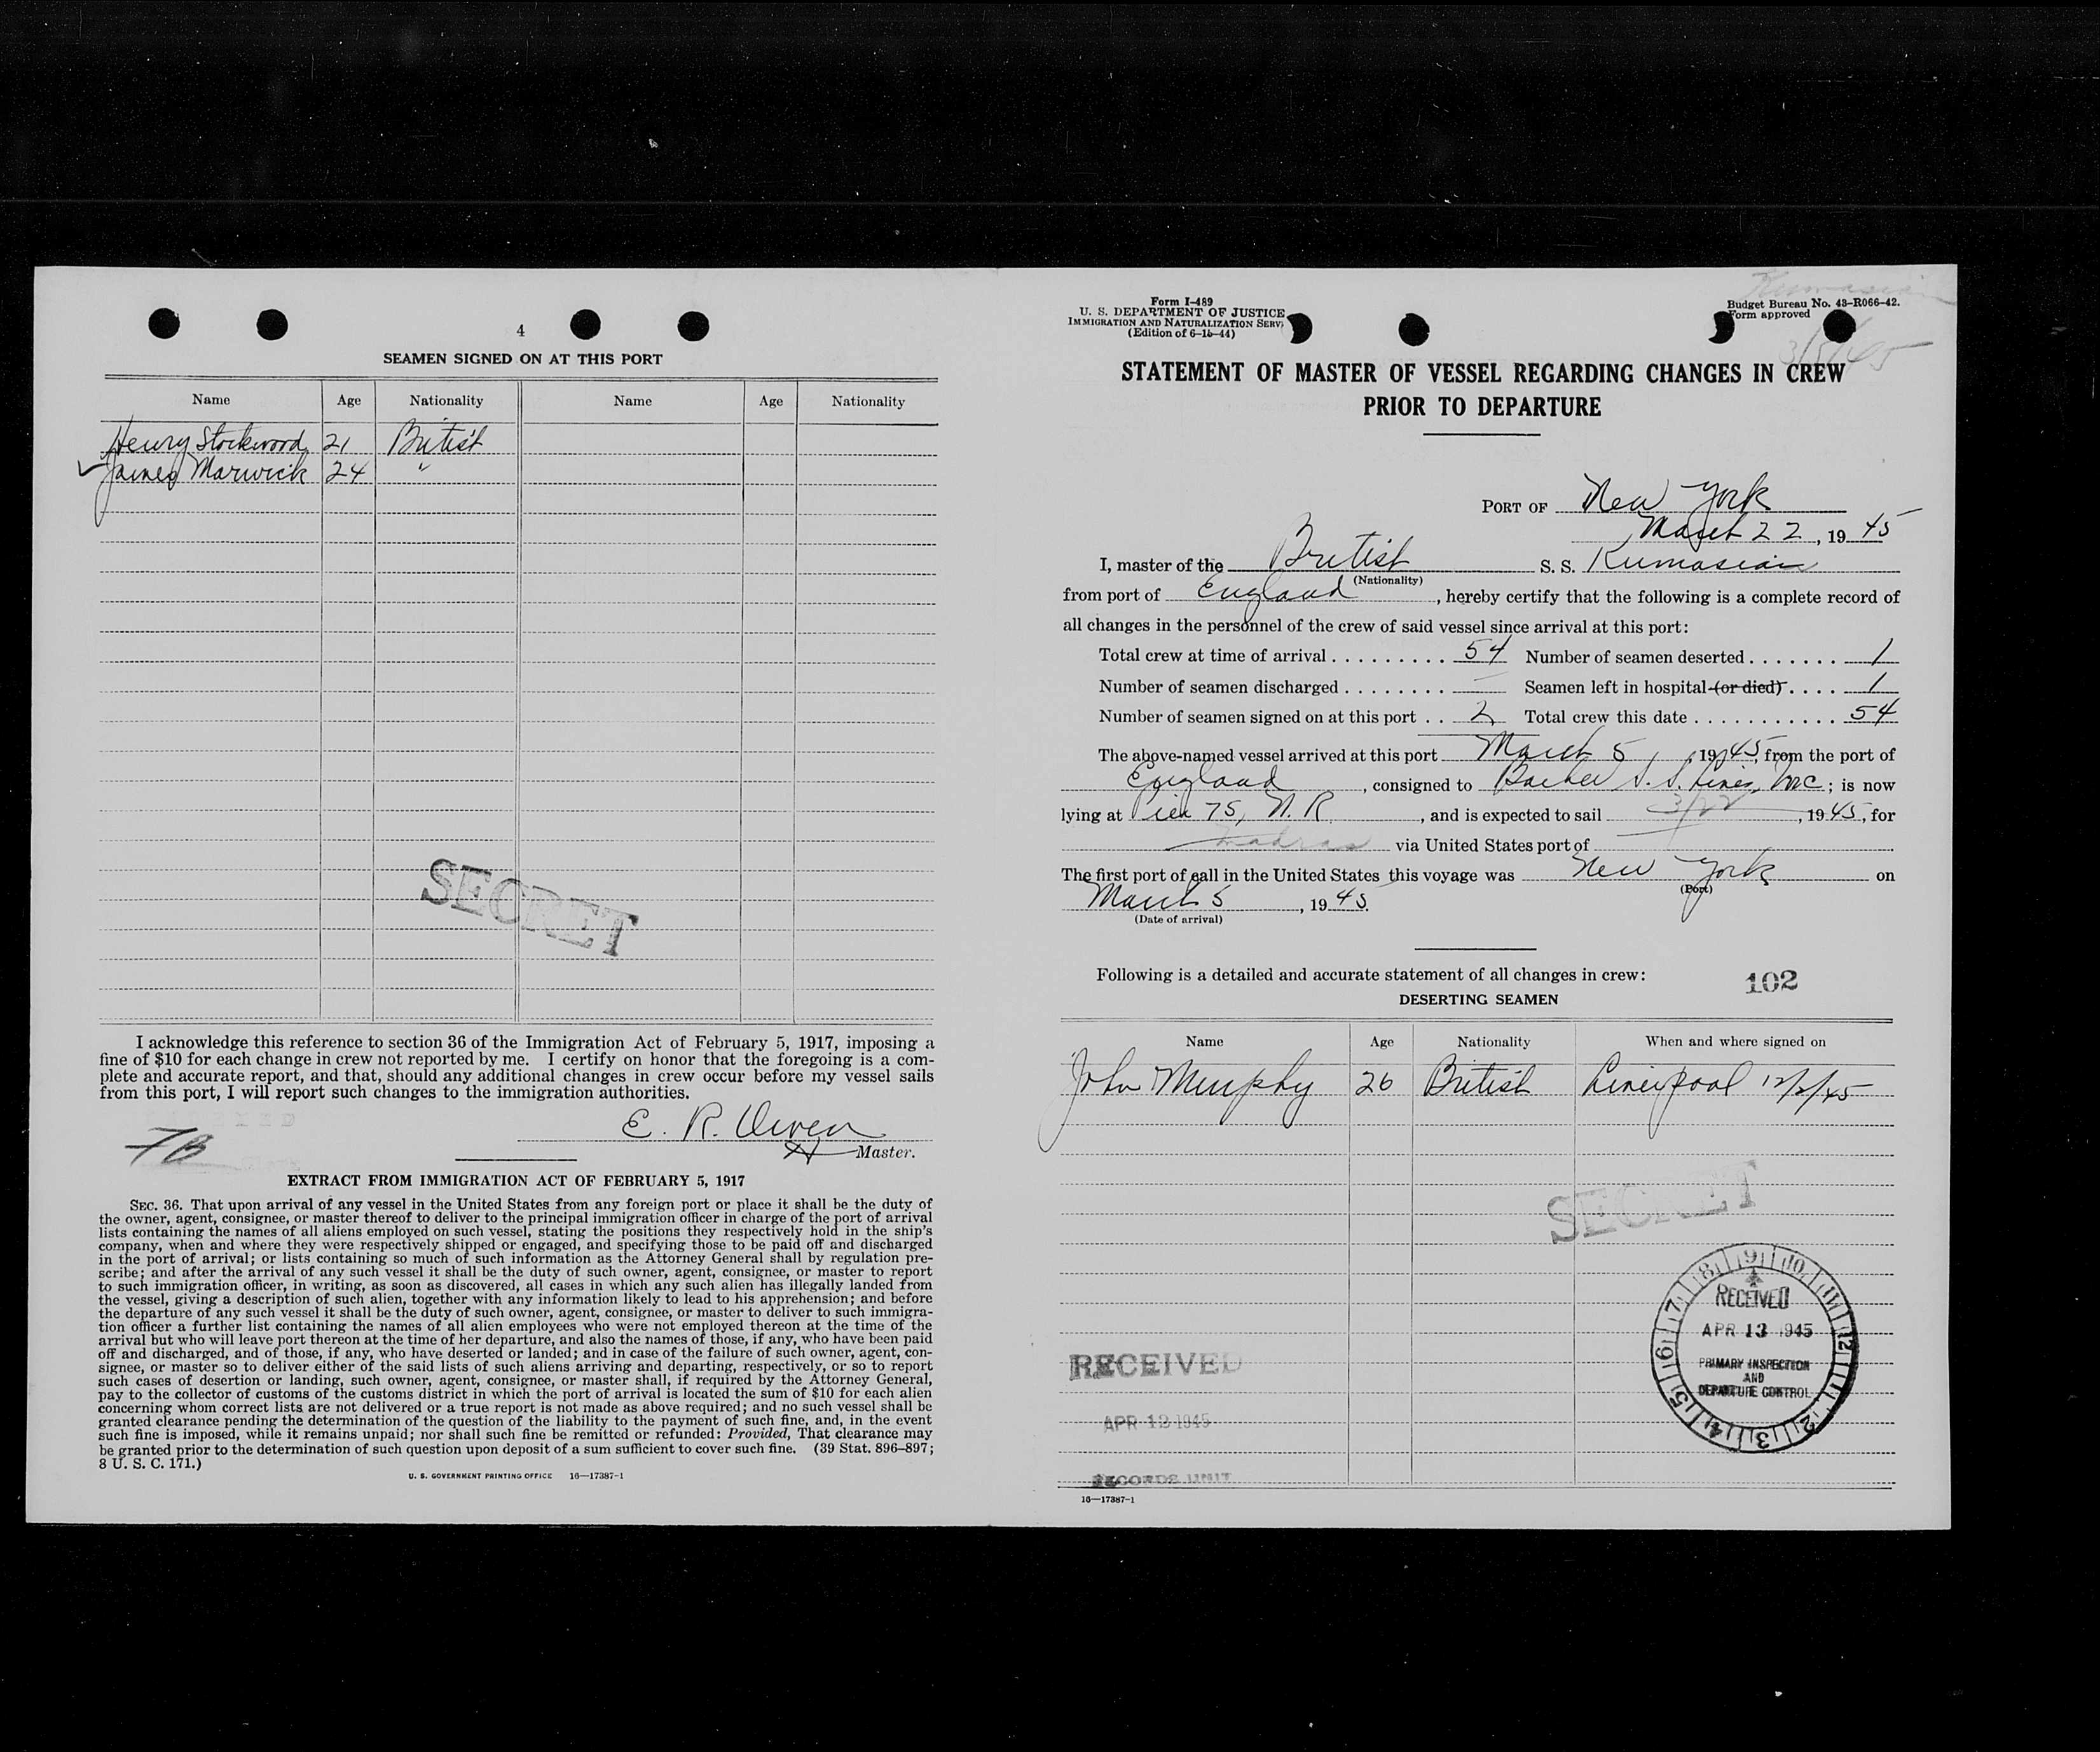 4
SEAMEN SIGNED ON AT THIS PORT
Name Age Nationality Name Age Nationality
Henry Stockwood 21 British
✓ James Marwick 24 "
SECRET
I acknowledge this reference to section 36 of the Immigration Act of February 5, 1917, imposing a
fine of $10 for each change in crew not reported by me. I certify on honor that the foregoing is a com-
plete and accurate report, and that, should any additional changes in crew occur before my vessel sails
from this port, I will report such changes to the immigration authorities.
E. R. Owen
Master.
EXTRACT FROM IMMIGRATION ACT OF FEBRUARY 5, 1917
SEC. 36. That upon arrival of any vessel in the United States from any foreign port or place it shall be the duty of
the owner, agent, consignee, or master thereof to deliver to the principal immigration officer in charge of the port of arrival
lists containing the names of all aliens employed on such vessel, stating the positions they respectively hold in the ship's
company, when and where they were respectively shipped or engaged, and specifying those to be paid off and discharged
in the port of arrival; or lists containing so much of such information as the Attorney General shall by regulation pre-
scribe; and after the arrival of any such vessel it shall be the duty of such owner, agent, consignee, or master to report
to such immigration officer, in writing, as soon as discovered, all cases in which any such alien has illegally landed from
the vessel, giving a description of such alien, together with any information likely to lead to his apprehension; and before
the departure of any such vessel it shall be the duty of such owner, agent, consignee, or master to deliver to such immigra-
tion officer a further list containing the names of all alien employees who were not employed thereon at the time of the
arrival but who will leave port thereon at the time of her departure, and also the names of those, if any, who have been paid
off and discharged, and of those, if any, who have deserted or landed; and in case of the failure of such owner, agent, con-
signee, or master so to deliver either of the said lists of such aliens arriving and departing, respectively, or so to report
such cases of desertion or landing, such owner, agent, consignee, or master shall, if required by the Attorney General,
pay to the collector of customs of the customs district in which the port of arrival is located the sum of $10 for each alien
concerning whom correct lists are not delivered or a true report is not made as above required; and no such vessel shall be
granted clearance pending the determination of the question of the liability to the payment of such fine, and, in the event
such fine is imposed, while it remains unpaid; nor shall such fine be remitted or refunded: Provided, That clearance may
be granted prior to the determination of such question upon deposit of a sum sufficient to cover such fine. (39 Stat. 896–897;
8 U. S. C. 171.)
U. S. GOVERNMENT PRINTING OFFICE 16—17387-1
Kumasian
Form I-489
U. S. DEPARTMENT OF JUSTICE
IMMIGRATION AND NATURALIZATION SERV
(Edition of 6-15-44)
Budget Bureau No. 43-R066-42.
Form approved
3/5/45
STATEMENT OF MASTER OF VESSEL REGARDING CHANGES IN CREW
PRIOR TO DEPARTURE
PORT OF New York
March 22, 1945
I, master of the British S. S. Kumasian
(Nationality)
from port of England, hereby certify that the following is a complete record of
all changes in the personnel of the crew of said vessel since arrival at this port:
Total crew at time of arrival 54 Number of seamen deserted 1
Number of seamen discharged — Seamen left in hospital (or died) 1
Number of seamen signed on at this port 2 Total crew this date 54
The above-named vessel arrived at this port March 5, 1945, from the port of
England, consigned to Barber S. S. Lines, Inc; is now
lying at Pier 75, N. R., and is expected to sail 3/22, 1945, for
Madras via United States port of
The first port of call in the United States this voyage was New York on
(Port)
March 5, 1945.
(Date of arrival)
Following is a detailed and accurate statement of all changes in crew:
102
DESERTING SEAMEN
Name Age Nationality When and where signed on
John Murphy 26 British Liverpool 12/2/45
SECRET
6 7 8 9 10 11 12 1 2 3 4 5
RECEIVED
APR 13 1945
PRIMARY INSPECTION
AND
DEPARTURE CONTROL
RECEIVED
APR 13 1945
RECORDS UNIT
16—17387-1